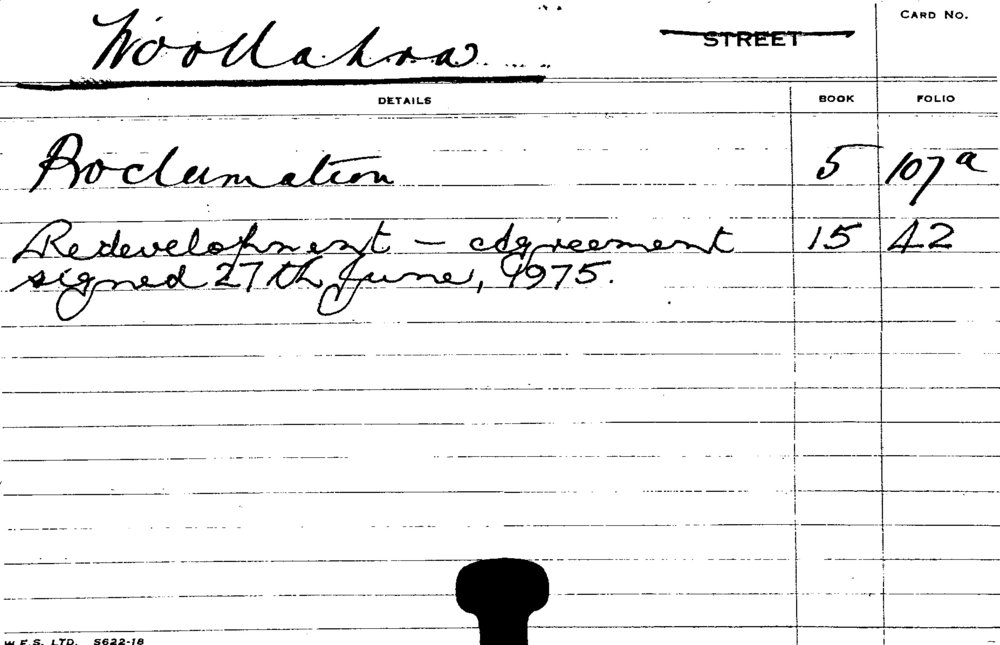 CARD No.
Woollahra STREET
DETAILS BOOK FOLIO
Proclamation 5 107a
Redevelopment – Agreement 15 42
signed 27th June, 1975.
W.F.S. LTD. S622-18